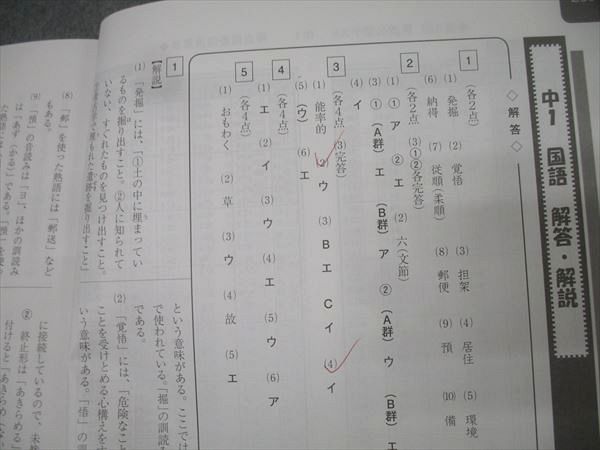 中1 国語 解答・解説
◇ 解答 ◇
1 (各2点)
(1) 発掘 (2) 覚悟 (3) 担架 (4) 居住 (5) 環境
(6) 納得 (7) 従順(柔順) (8) 郵便 (9) 預 (10) 備
2 (各2点 (3)①②各完答)
(1) ①ア ②エ (2) 六(文節)
(3) ①(A群)エ (B群)ア ②(A群)ウ (B群)エ
(4) イ
3 (各4点 (3)完答)
(1) 能率的 (2) ウ (3) B エ C イ (4) イ
(5) (ウ) (6) エ
4 (各4点)
(1) エ (2) イ (3) ウ (4) エ (5) ウ (6) ア
5 (各4点)
(1) おもわく (2) 草 (3) ウ (4) 故 (5) エ
【解説】
1
(1) 「発掘」には、「①土の中に埋まってい
るものを掘り出すこと。②人に知られて
いない、すぐれたものを見つけ出すこと。」
という意味がある。ここでは
で使われている。「掘」の訓読
である。
(2) 「覚悟」には、「危険なこと
ことを受けとめる心構えをす
いう意味がある。「悟」の
(8) 「郵」を使った熟語には「郵送」など
もある。
(9) 「預」の音読みは「ヨ」、ほかの訓読み
は「あず(かる)」である。「預」を使っ
に接続しているので、未然
② 終止形は「あきらめる」
付けると「あきらめない